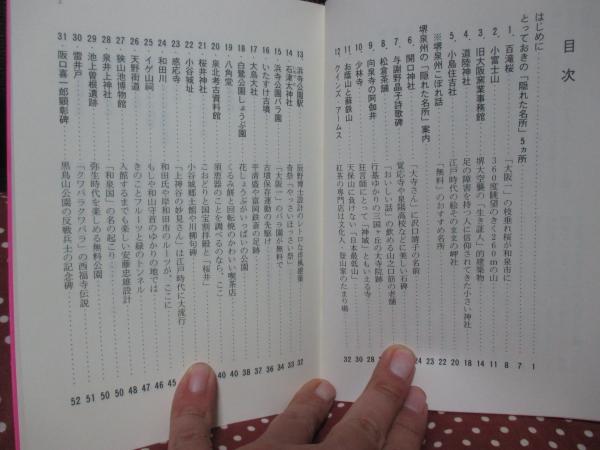 目次
はじめに 1
とっておきの「隠れた名所」5ヵ所
1．百滝桜 「大阪一」の枝垂れ桜が和泉市に 7
2．小富士山 360度眺望のきく260mの山 8
3．旧大阪窯業事務所 堺大空襲の「生き証人」的建築物 11
4．道陸神社 足の障害を持つ人に信仰されてきた小さい神社 14
5．小島住吉社 江戸時代の絵そのままの岬社 18
※堺泉州こぼれ話 「無料」のおすすめ名所
堺泉州の「隠れた名所」案内 23
6．開口神社 「大寺さん」に沢口靖子の名前 24
7．与謝野晶子詩歌碑 覚応寺や泉陽高校などに美しい石碑
8．松倉茶舗 「おいしい話」の飲める山之口筋の老舗
9．向泉寺の阿伽井 行基ゆかりの三国ヶ丘の大寺院跡
10．少林寺 狂言師にとって「聖域」ともいえる寺
11．お蔭山と蘇鉄山 天保山に負けない「日本最低山」 30
12．クインズ・アームス 紅茶の専門店は文化人・登山家のたまり場 32
13．浜寺公園駅 辰野博士設計のレトロな洋風建築 32
14．石津太神社 奇祭「やっさいほっさい祭」 33
15．浜寺公園バラ園 「大阪一」のバラ園が無料で 34
16．いたすけ古墳 古墳保存運動の先駆け
17．大鳥大社 平清盛や富岡鉄斎の足跡
18．白鷺公園しょうぶ園 花しょうぶがいっぱいの公園
19．八角堂 くるみ餅と回転焼のかわいい喫茶店
20．泉北考古資料館 須恵器のことを調べるのなら、ここ 40
21．桜井神社 こおどりと国宝割拝殿と「桜井」
22．小谷城址 小谷城郷土館や川柳句碑
23．感応寺 「上神谷の妙見さん」は江戸時代に大流行
24．和田川 和田氏や岸和田市のルーツが、ここに
25．イゲ山祠 もしや和山守首のゆかりの地では 46
26．天野街道 きのことフルーツと緑のトンネル 47
27．狭山池博物館 入館するまでも楽しい安藤忠雄設計 48
28．泉井上神社 「和泉国」の名の起こり 50
29．池上曽根遺跡 弥生時代を楽しめる無料公園 50
30．雷井戸 「クワバラクワバラ」の西福寺伝説 51
31．阪口喜一郎顕彰碑 黒鳥山公園の反戦兵士の記念碑 52